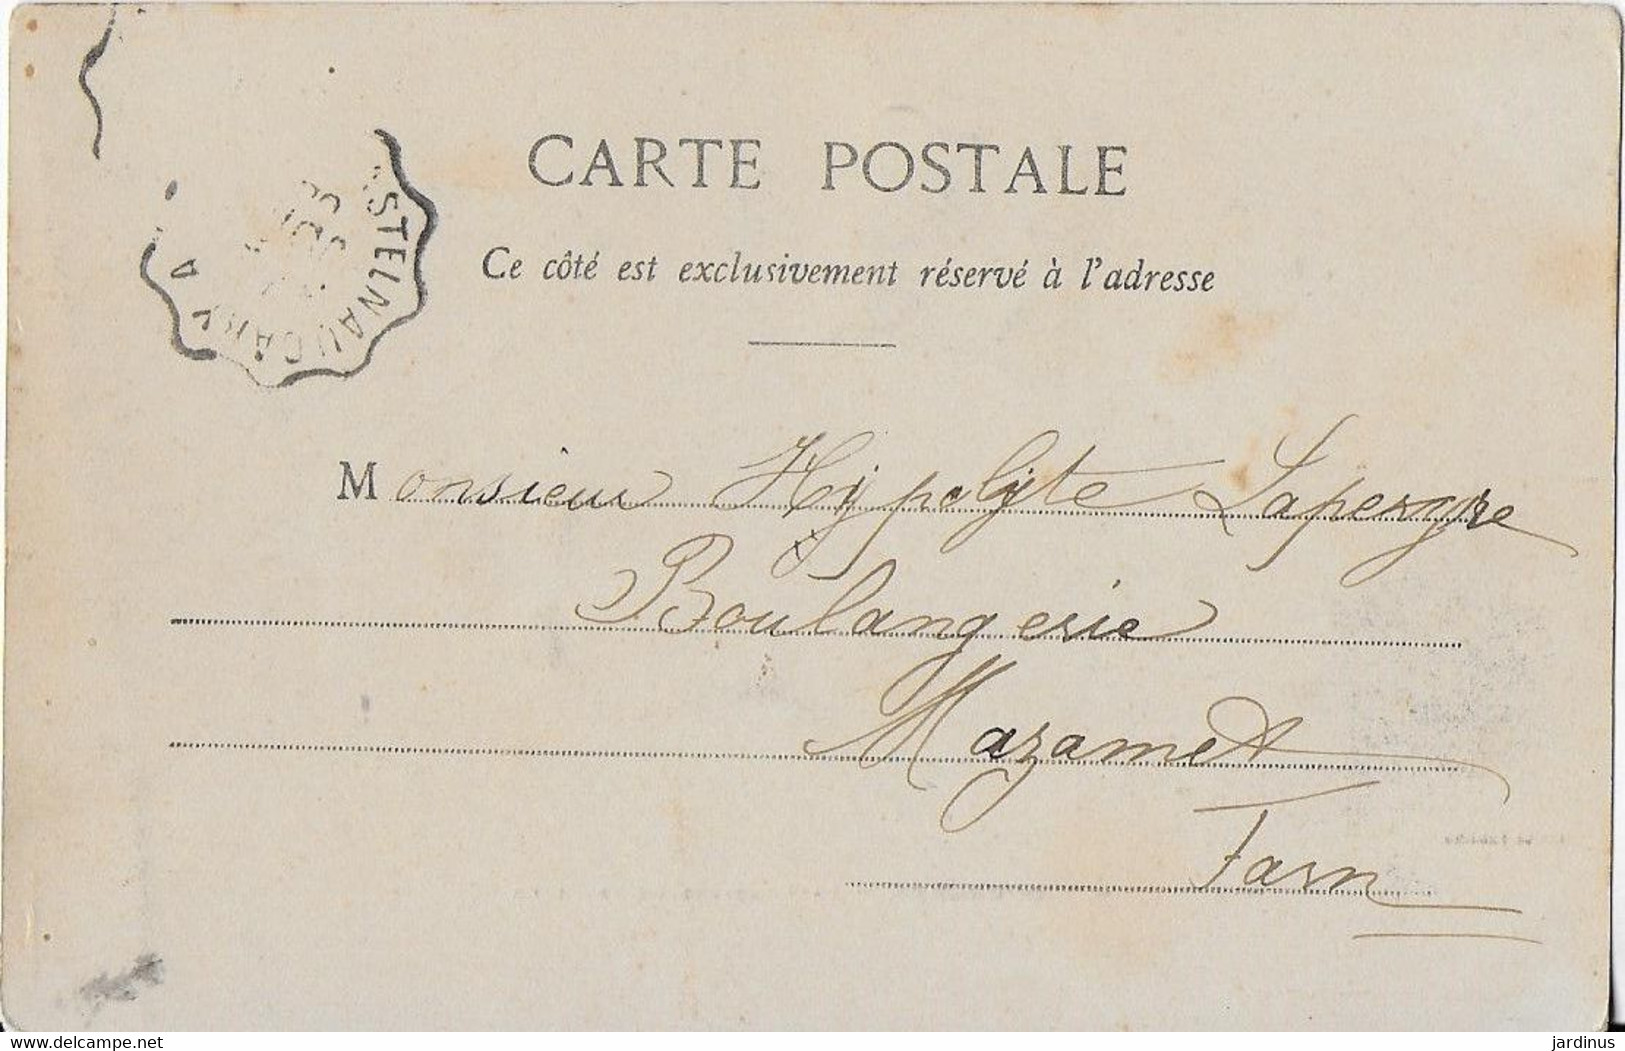 CARTE POSTALE
Ce côté est exclusivement réservé à l'adresse
STELNAUDARY
Monsieur Hypolyte
Boulangerie
Mazamet
Tarn
www.delcampe.net
jardinus